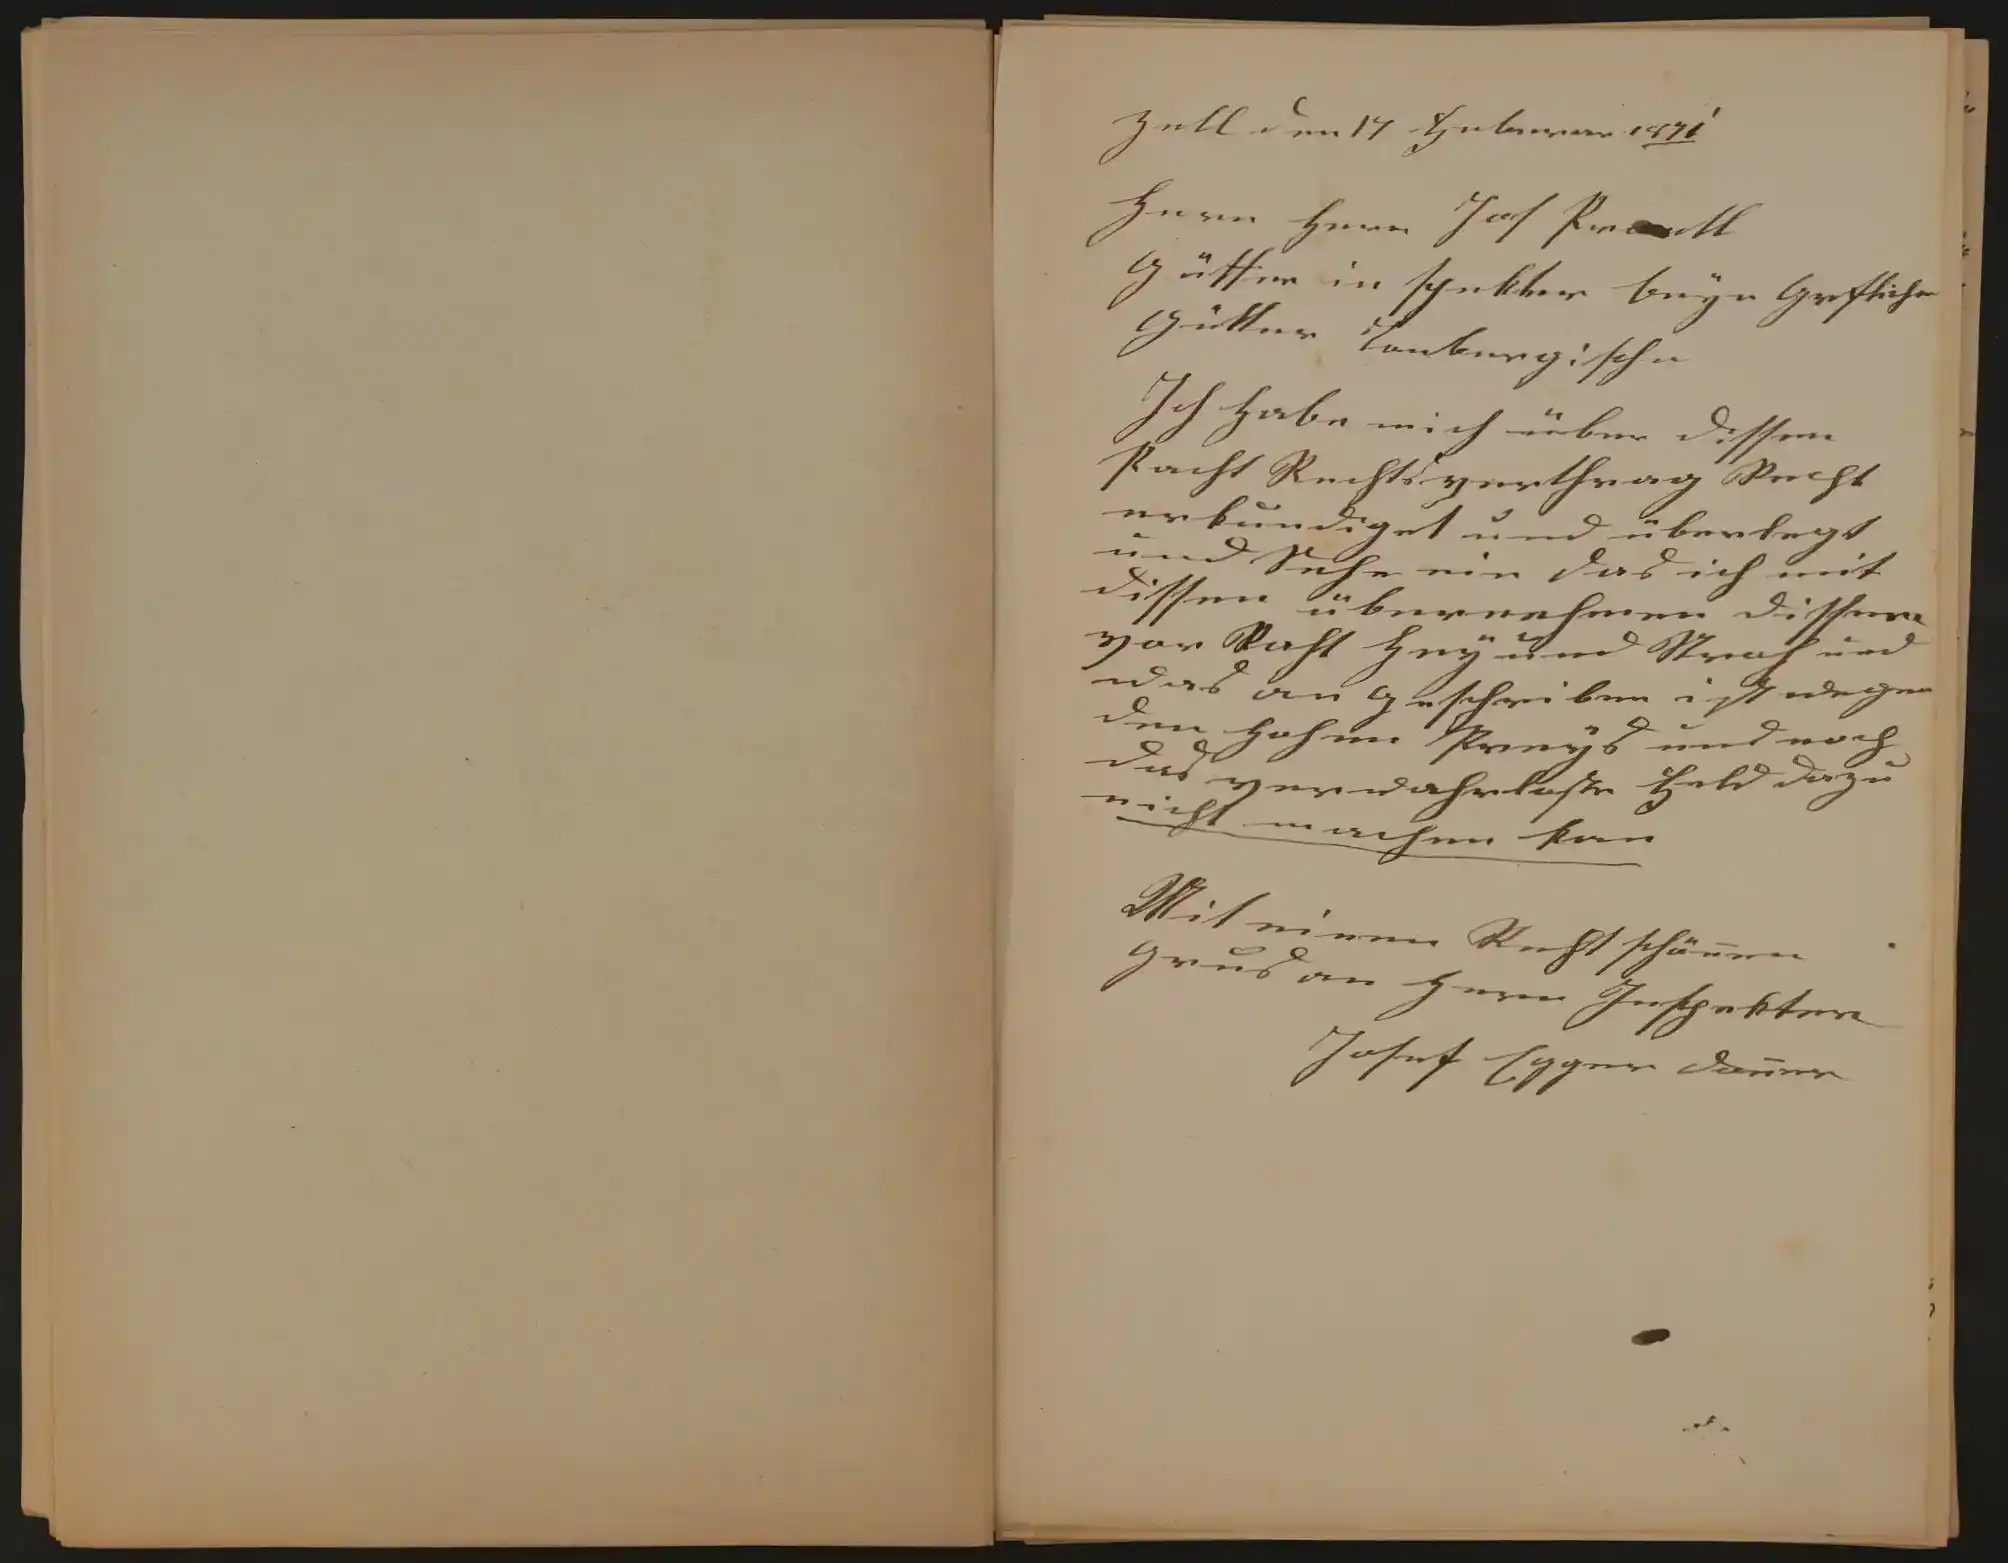 Zell den 17 Februar 1871
Herrn Herrn Jos Prandl
Gütter in spekter beye Grfliche
Gütter Tanbergische
Ich Habe mich über dissen
Pacht Rechtsverthrag Recht
erkundiget und überlegt
und Sehe ein das ich mit
dissen übernehmen
vor Raht Hey und Stroh und
was an geschriben ist wegen
den Hohen Preys und noch
das verwahrloste Feld dazu
nicht machen kan
Mit einen Recht schönen
Grus an Herrn Inspekter
Josef Egger